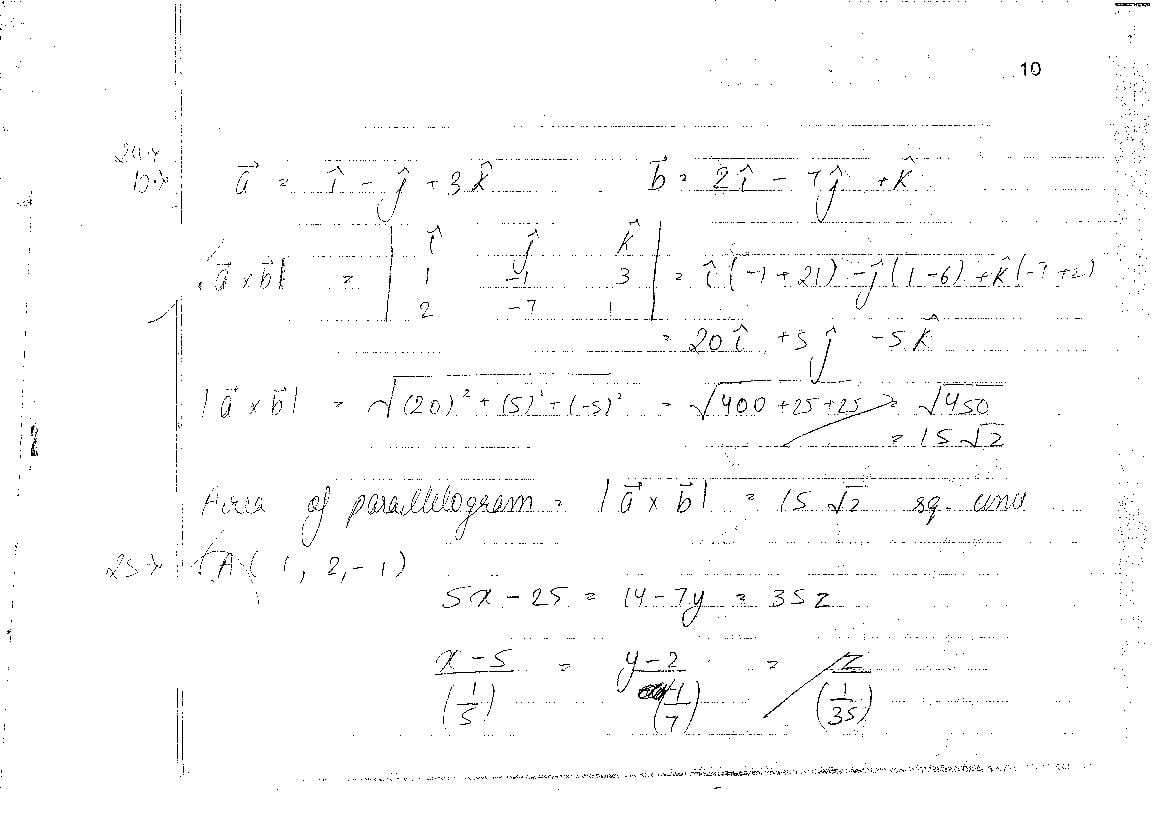 10
24.>
b.>
a⃗ = î - ĵ + 3k̂ b⃗ = 2î - 7ĵ + k̂
|a⃗ x b⃗| = | î ĵ k̂ | = î(-1 + 21) - ĵ(1 - 6) + k̂(-7 + 2)
1 -1 3
2 -7 1
= 20î + 5ĵ - 5k̂
|a⃗ x b⃗| = √(20)² + (5)² + (-5)² = √400 + 25 + 25 = √450
= 15√2
Area of parallelogram = |a⃗ x b⃗| = 15√2 sq. unit
25> A(1, 2, -1)
5x - 25 = 14 - 7y = 35z
x - 5 / (1/5) = y - 2 / (-1/7) = z / (1/35)